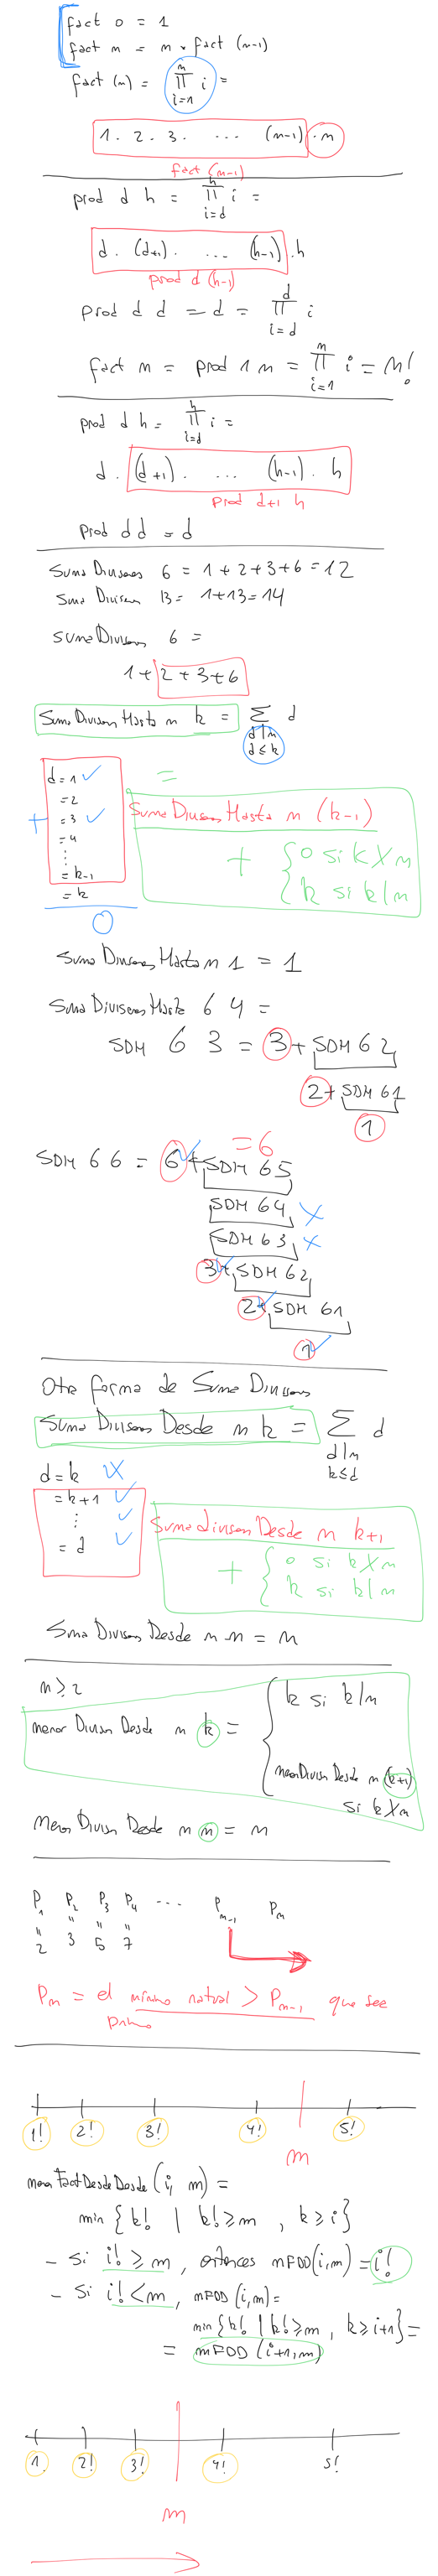 fact 0 = 1
fact n = n * fact (n-1)
fact (n) = ∏ i =
n
i=1
1 . 2 . 3 . ... (n-1) . n
fact (n-1)
prod d h = ∏ i =
h
i=d
d . (d+1) . ... (h-1) . h
prod d (h-1)
prod d d = d = ∏ i
d
i=d
fact n = prod 1 n = ∏ i = n!
n
i=1
prod d h = ∏ i =
h
i=d
d . (d+1) . ... (h-1) . h
prod d+1 h
prod d d = d
Suma Divisores 6 = 1+2+3+6 = 12
Suma Divisores 13 = 1+13 = 14
suma Divisores 6 =
1 + 2 + 3 + 6
Suma Divisores Hasta n k = ∑ d
d|n
d≤k
d = 1 ✓
= 2
= 3 ✓
= 4
⋮
= k-1
= k
+
0
=
Suma Divisores Hasta n (k-1)
+ { 0 si k∤n
k si k|n
Suma Divisores Hasta n 1 = 1
Suma Divisores Hasta 6 4 =
SDH 6 3 = 3 + SDH 6 2
2 + SDH 6 1
1
= 6
SDH 6 6 = 6 + SDH 6 5
SDH 6 4 X
SDH 6 3 X
3 + SDH 6 2
2 + SDH 6 1
1
Otra forma de Suma Divisores
Suma Divisores Desde n k = ∑ d
d|n
k≤d
d = k
= k+1 ✓
⋮ ✓
= d ✓
Suma divisores Desde n k+1
+ { 0 si k∤n
k si k|n
Suma Divisores Desde n n = n
n ≥ 2
menor Divisor Desde n k = { k si k|n
menor Divisor Desde n (k+1)
si k∤n
Menor Divisor Desde n n = n
P1 P2 P3 P4 ... Pn-1 Pn
" " " "
2 3 5 7
Pn = el mínimo natural > Pn-1 que sea
primo
1! 2! 3! 4! 5!
m
menor Fact Desde Desde (i, m) =
min { k! | k! ≥ m , k ≥ i }
- Si i! ≥ m, entonces mFDD(i,m) = i!
- Si i! < m, mFDD (i,m) =
min { k! | k! ≥ m , k ≥ i+1 } =
= mFDD (i+1, m)
1. 2! 3! 4! 5!
m